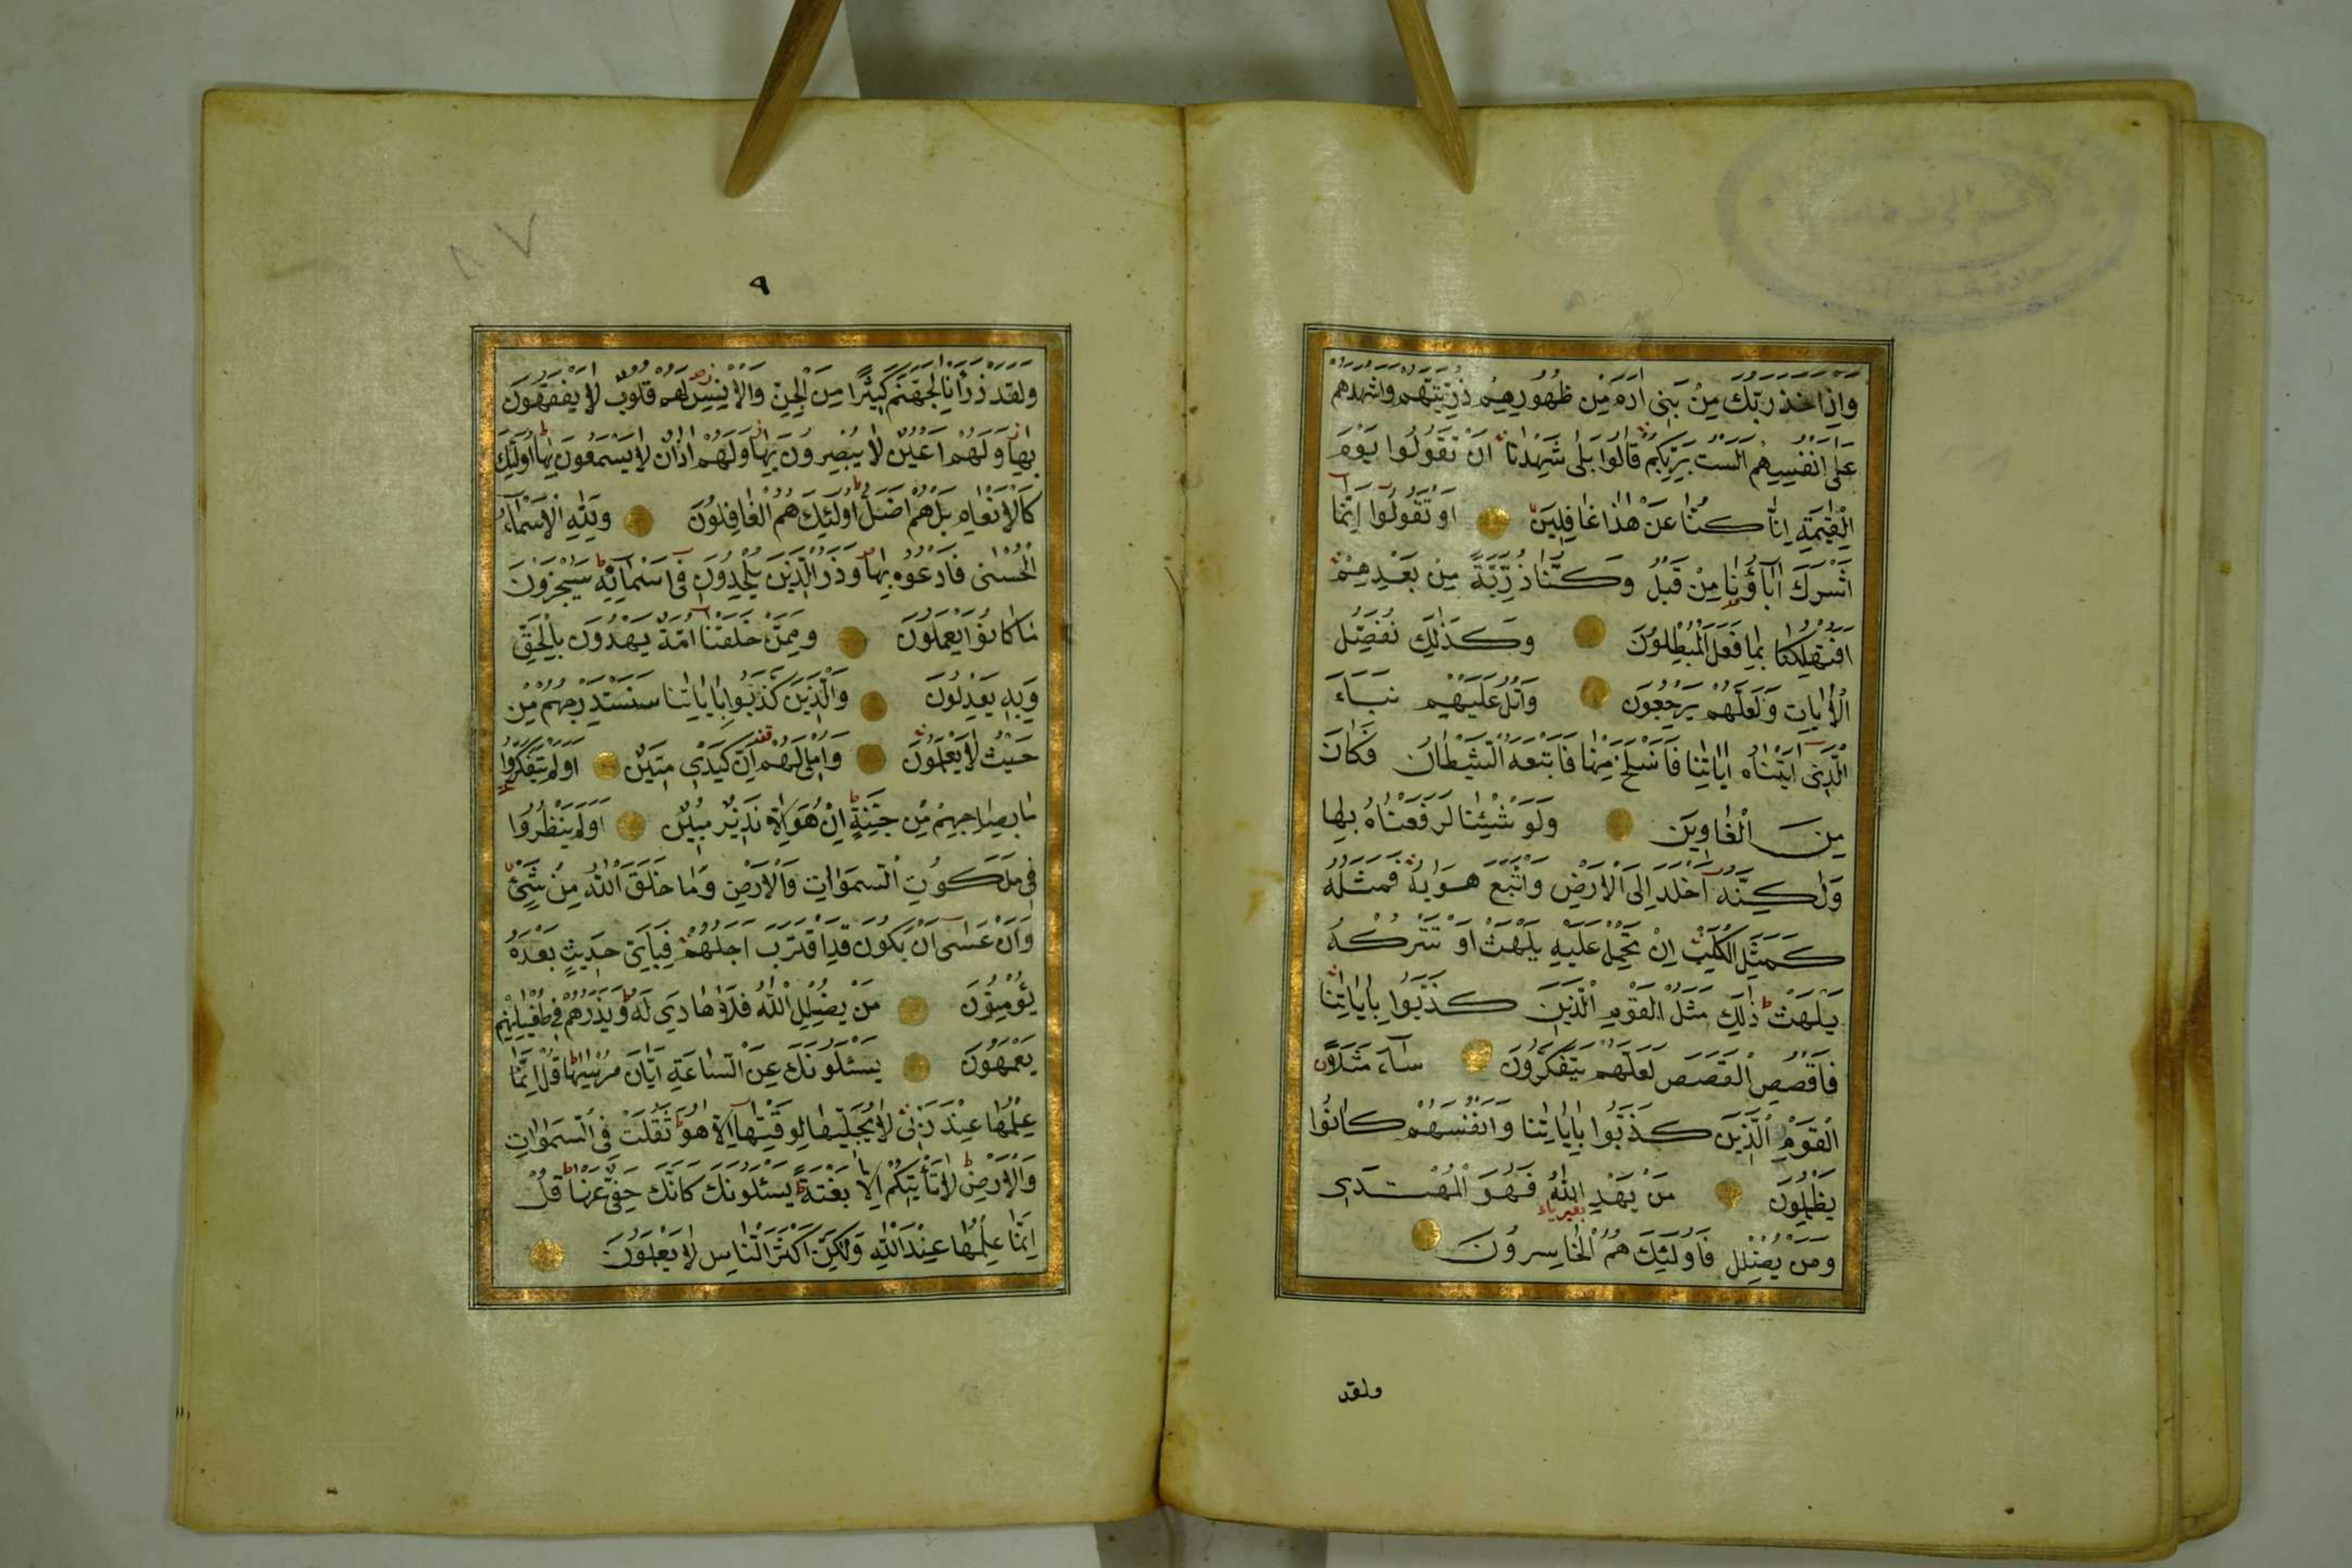 وَاِذْ اَخَذَ رَبُّكَ مِنْ بَنِى اٰدَمَ مِنْ ظُهُورِهِمْ ذُرِّيَّتَهُمْ وَاَشْهَدَهُمْ
عَلٰى اَنْفُسِهِمْ اَلَسْتُ بِرَبِّكُمْ قَالُوا بَلٰى شَهِدْنَا اَنْ تَقُولُوا يَوْمَ
الْقِيٰمَةِ اِنَّا كُنَّا عَنْ هٰذَا غَافِلِينَ اَوْ تَقُولُوا اِنَّمَا
اَشْرَكَ اٰبَاؤُنَا مِنْ قَبْلُ وَكُنَّا ذُرِّيَّةً مِنْ بَعْدِهِمْ
اَفَتُهْلِكُنَا بِمَا فَعَلَ الْمُبْطِلُونَ وَكَذٰلِكَ نُفَصِّلُ
الْاٰيَاتِ وَلَعَلَّهُمْ يَرْجِعُونَ وَاتْلُ عَلَيْهِمْ نَبَاَ
الَّذِى اٰتَيْنَاهُ اٰيَاتِنَا فَانْسَلَخَ مِنْهَا فَاَتْبَعَهُ الشَّيْطَانُ فَكَانَ
مِنَ الْغَاوِينَ وَلَوْ شِئْنَا لَرَفَعْنَاهُ بِهَا
وَلٰكِنَّهُ اَخْلَدَ اِلَى الْاَرْضِ وَاتَّبَعَ هَوٰيهُ فَمَثَلُهُ
كَمَثَلِ الْكَلْبِ اِنْ تَحْمِلْ عَلَيْهِ يَلْهَثْ اَوْ تَتْرُكْهُ
يَلْهَثْ ذٰلِكَ مَثَلُ الْقَوْمِ الَّذِينَ كَذَّبُوا بِاٰيَاتِنَا
فَاقْصُصِ الْقَصَصَ لَعَلَّهُمْ يَتَفَكَّرُونَ سَاءَ مَثَلًا
الْقَوْمُ الَّذِينَ كَذَّبُوا بِاٰيَاتِنَا وَاَنْفُسَهُمْ كَانُوا
يَظْلِمُونَ مَنْ يَهْدِ اللّٰهُ فَهُوَ الْمُهْتَدِى
بغير ياء
وَمَنْ يُضْلِلْ فَاُولٰئِكَ هُمُ الْخَاسِرُونَ
ولقد
٩
وَلَقَدْ ذَرَاْنَا لِجَهَنَّمَ كَثِيرًا مِنَ الْجِنِّ وَالْاِنْسِ لَهُمْ قُلُوبٌ لَا يَفْقَهُونَ
بِهَا وَلَهُمْ اَعْيُنٌ لَا يُبْصِرُونَ بِهَا وَلَهُمْ اٰذَانٌ لَا يَسْمَعُونَ بِهَا اُولٰئِكَ
كَالْاَنْعَامِ بَلْ هُمْ اَضَلُّ اُولٰئِكَ هُمُ الْغَافِلُونَ وَلِلّٰهِ الْاَسْمَاءُ
الْحُسْنٰى فَادْعُوهُ بِهَا وَذَرُوا الَّذِينَ يُلْحِدُونَ فِى اَسْمَائِهِ سَيُجْزَوْنَ
مَا كَانُوا يَعْمَلُونَ وَمِمَّنْ خَلَقْنَا اُمَّةٌ يَهْدُونَ بِالْحَقِّ
وَبِهِ يَعْدِلُونَ وَالَّذِينَ كَذَّبُوا بِاٰيَاتِنَا سَنَسْتَدْرِجُهُمْ مِنْ
حَيْثُ لَا يَعْلَمُونَ وَاُمْلِى لَهُمْ اِنَّ كَيْدِى مَتِينٌ اَوَلَمْ يَتَفَكَّرُوا
مَا بِصَاحِبِهِمْ مِنْ جِنَّةٍ اِنْ هُوَ اِلَّا نَذِيرٌ مُبِينٌ اَوَلَمْ يَنْظُرُوا
فِى مَلَكُوتِ السَّمٰوَاتِ وَالْاَرْضِ وَمَا خَلَقَ اللّٰهُ مِنْ شَىْءٍ
وَاَنْ عَسٰى اَنْ يَكُونَ قَدِ اقْتَرَبَ اَجَلُهُمْ فَبِاَىِّ حَدِيثٍ بَعْدَهُ
يُؤْمِنُونَ مَنْ يُضْلِلِ اللّٰهُ فَلَا هَادِىَ لَهُ وَيَذَرُهُمْ فِى طُغْيَانِهِمْ
يَعْمَهُونَ يَسْئَلُونَكَ عَنِ السَّاعَةِ اَيَّانَ مُرْسٰيهَا قُلْ اِنَّمَا
عِلْمُهَا عِنْدَ رَبِّى لَا يُجَلِّيهَا لِوَقْتِهَا اِلَّا هُوَ ثَقُلَتْ فِى السَّمٰوَاتِ
وَالْاَرْضِ لَا تَأْتِيكُمْ اِلَّا بَغْتَةً يَسْئَلُونَكَ كَاَنَّكَ حَفِىٌّ عَنْهَا قُلْ
اِنَّمَا عِلْمُهَا عِنْدَ اللّٰهِ وَلٰكِنَّ اَكْثَرَ النَّاسِ لَا يَعْلَمُونَ